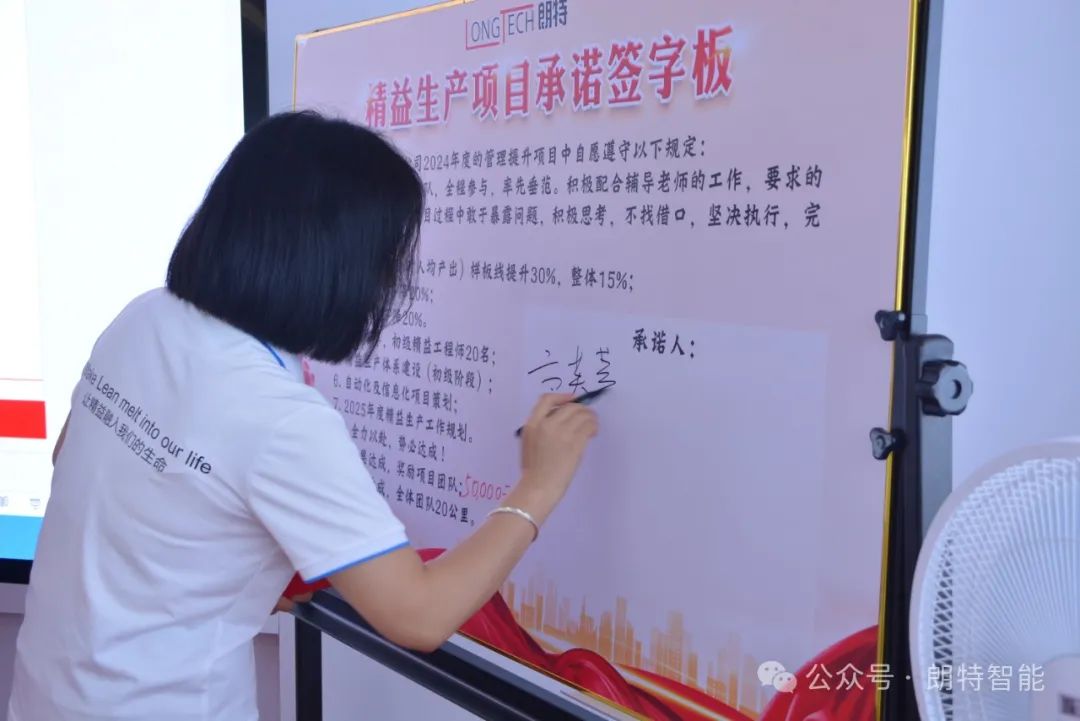 LONGTECH 朗特
精益生产项目承诺签字板
公司2024年度的管理提升项目中自愿遵守以下规定：
队，全程参与，率先垂范。积极配合辅导老师的工作，要求的
目过程中敢于暴露问题，积极思考，不找借口，坚决执行，完
人均产出）样板线提升30%，整体15%；
20%。
，初级精益工程师20名；
生产体系建设（初级阶段）；
6. 自动化及信息化项目策划；
7. 2025年度精益生产工作规划。
全力以赴，势必达成！
达成，奖励项目团队：50,000
成，全体团队20公里。
承诺人：
Lean melt into our life
让精益融入我们的生命
公众号·朗特智能